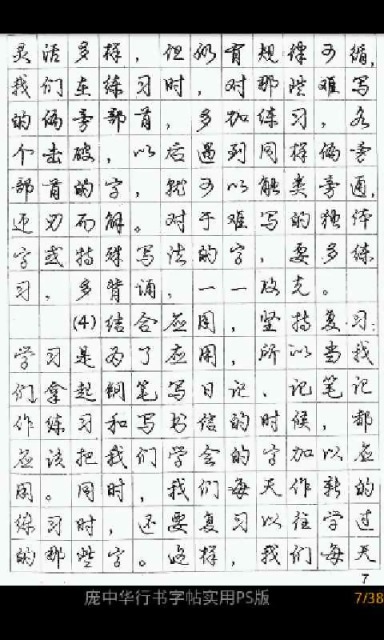 灵活多样，但仍有规律可循，
我们在练习时，对那些难写
的偏旁部首，多加练习，各
个击破，以后遇到同样偏旁
部首的字，就可以触类旁通，
迎刃而解。对于难写的独体
字或特殊写法的字，要多练
习，多背诵，一一攻克。
(4)结合应用，坚持复习：
学习是为了应用，所以当我
们拿起钢笔写日记、记笔记
作练习和写书信的时候，都
应该把我们学会的字加以应
用。同时，我们每天作新的
练习时，还要复习以往学过
的那些字。这样，我们每天
7
庞中华行书字帖实用PS版
7/38